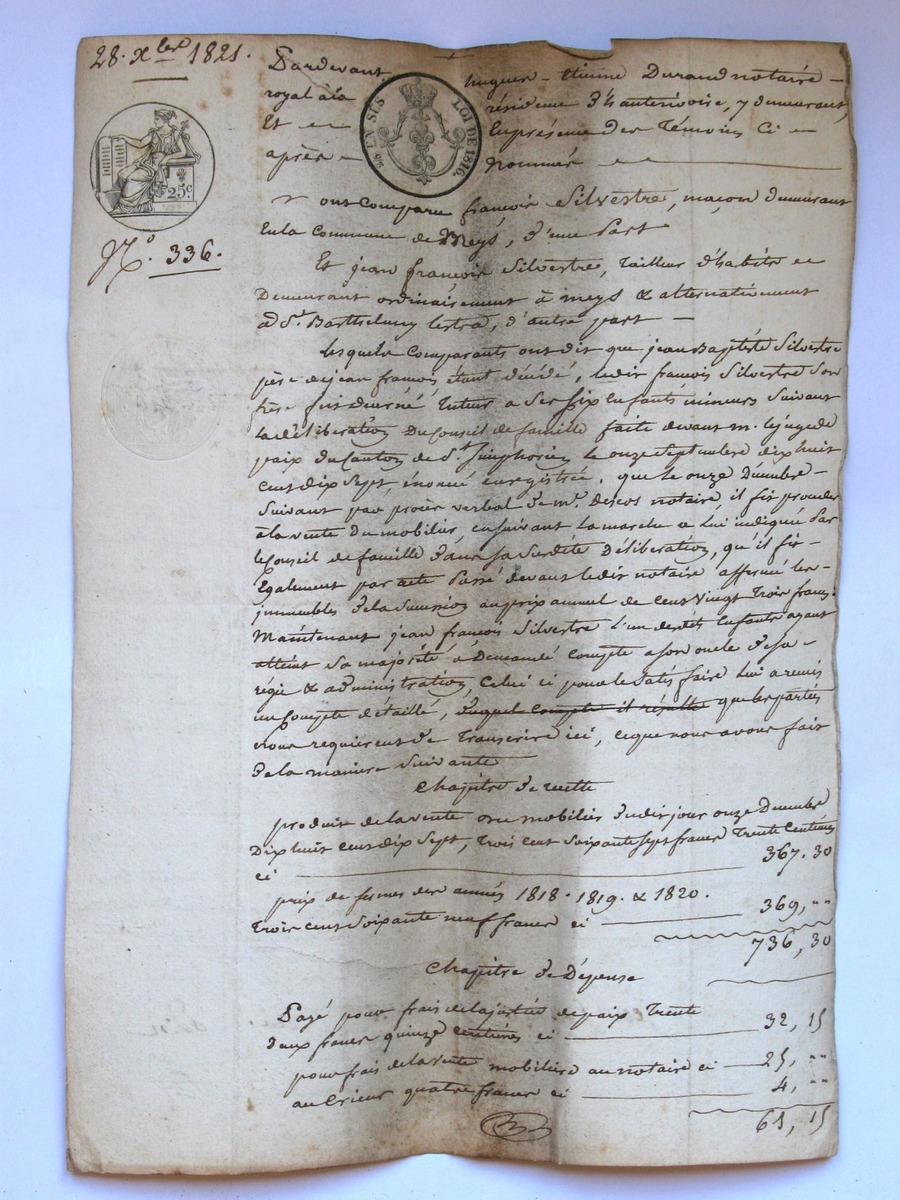 28. Xbre 1821.
25c
Nº. 336.
EN SUS LOI DE 1816.
Pardevant hugues - Etienne Durand notaire -
royal à la résidence d'hauterivoire, y demeurant,
Et en présence des Témoins Ci -
après - nommés -
ont Comparu françois Silvestre, maçon demeurant
En la Commune de Meys, d'une Part
Et jean françois Silvestre, tailleur d'habits
Demeurant ordinairement à meys & alternativement
à St. Barthelemy lestra, d'autre part -
lesquels Comparants ont dit que jean Baptiste Silvestre
père de jean françois étant décédé, ledit françois Silvestre son
frère fut décerné tuteur a ses six Enfants mineurs Suivant
la délibération Du Conseil de famille faite devant m. le juge de
paix du Canton de St. Simphorien le onze Septembre dix huit
Cent dix Sept, énoncé enregistrée. que le onze Décembre -
Suivant par procès verbal de me. Descos notaire, il fit procéder
à la vente du mobilier, en suivant la marche a lui indiquée Par
le Conseil de famille dans sa Susdite Délibération, qu'il fit -
Egalement par acte Passé devant ledit notaire affermé les -
immeubles de la Succession au prix annuel de Cent Vingt Trois francs.
Maintenant jean françois Silvestre l'un desdits Enfants ayant
atteint Sa majorité a Demandé Compte a son oncle de sa -
régie & administration, Celui ci pour le Satisfaire lui a remis
un Compte détaillé, duquel Compte il résulte que les parties
nous requierent de Transcrire ici, ce que nous avons fait
De la manière Suivante
Chapitre de recette
produit de la vente du mobilier dudit jour onze Décembre
Dix huit Cent dix Sept, Trois Cent Soixante sept francs Trente Centimes
ci 367. 30
prix de fermes des années 1818. 1819. & 1820.
Trois cent soixante neuf francs ci 369, "
736, 30
Chapitre de Dépense
Payé pour frais de la justice de paix Trente
Deux francs quinze centimes ci 32, 15
pour frais de la vente mobilière au notaire ci 25, "
au Crieur quatre francs ci 4, "
61, 15